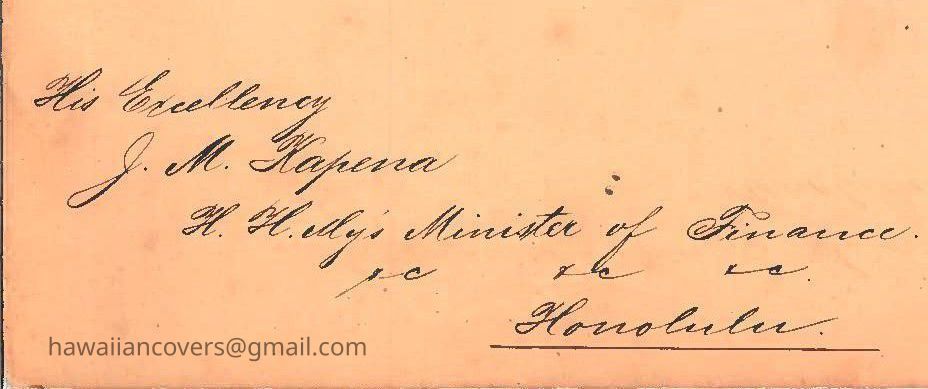 His Excellency
J. M. Kapena
H. H. My's Minister of Finance.
&c &c &c.
Honolulu.
hawaiiancovers@gmail.com